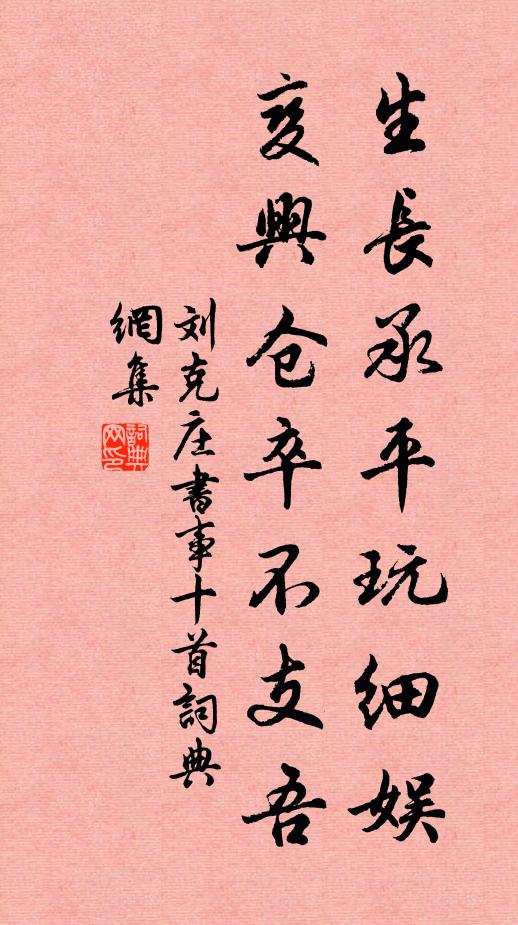 生長承平玩细娱
变興仓卒不支吾
刘克庄書事十首詞典
網集
詞典網印